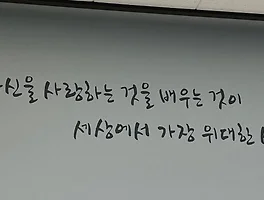 신을 사랑하는 것을 배우는 것이
세상에서 가장 위대한